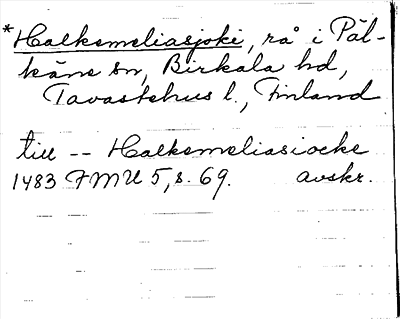 *Halksmeliasjoki, rå i Päl-
käne sn, Birkala hd,
Tavastehus l., Finland
till -- Halksmeliasiocke
1483 FMU 5, s. 69. avskr.